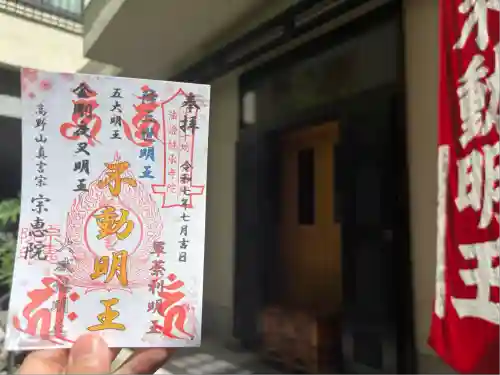 奉拝
令和七年七月吉日
法灯継承寺院
降三世明王
軍荼利明王
五大明王
不動明王
金剛夜叉明王
大威徳明王
高野山真言宗
宗恵院
不動明王